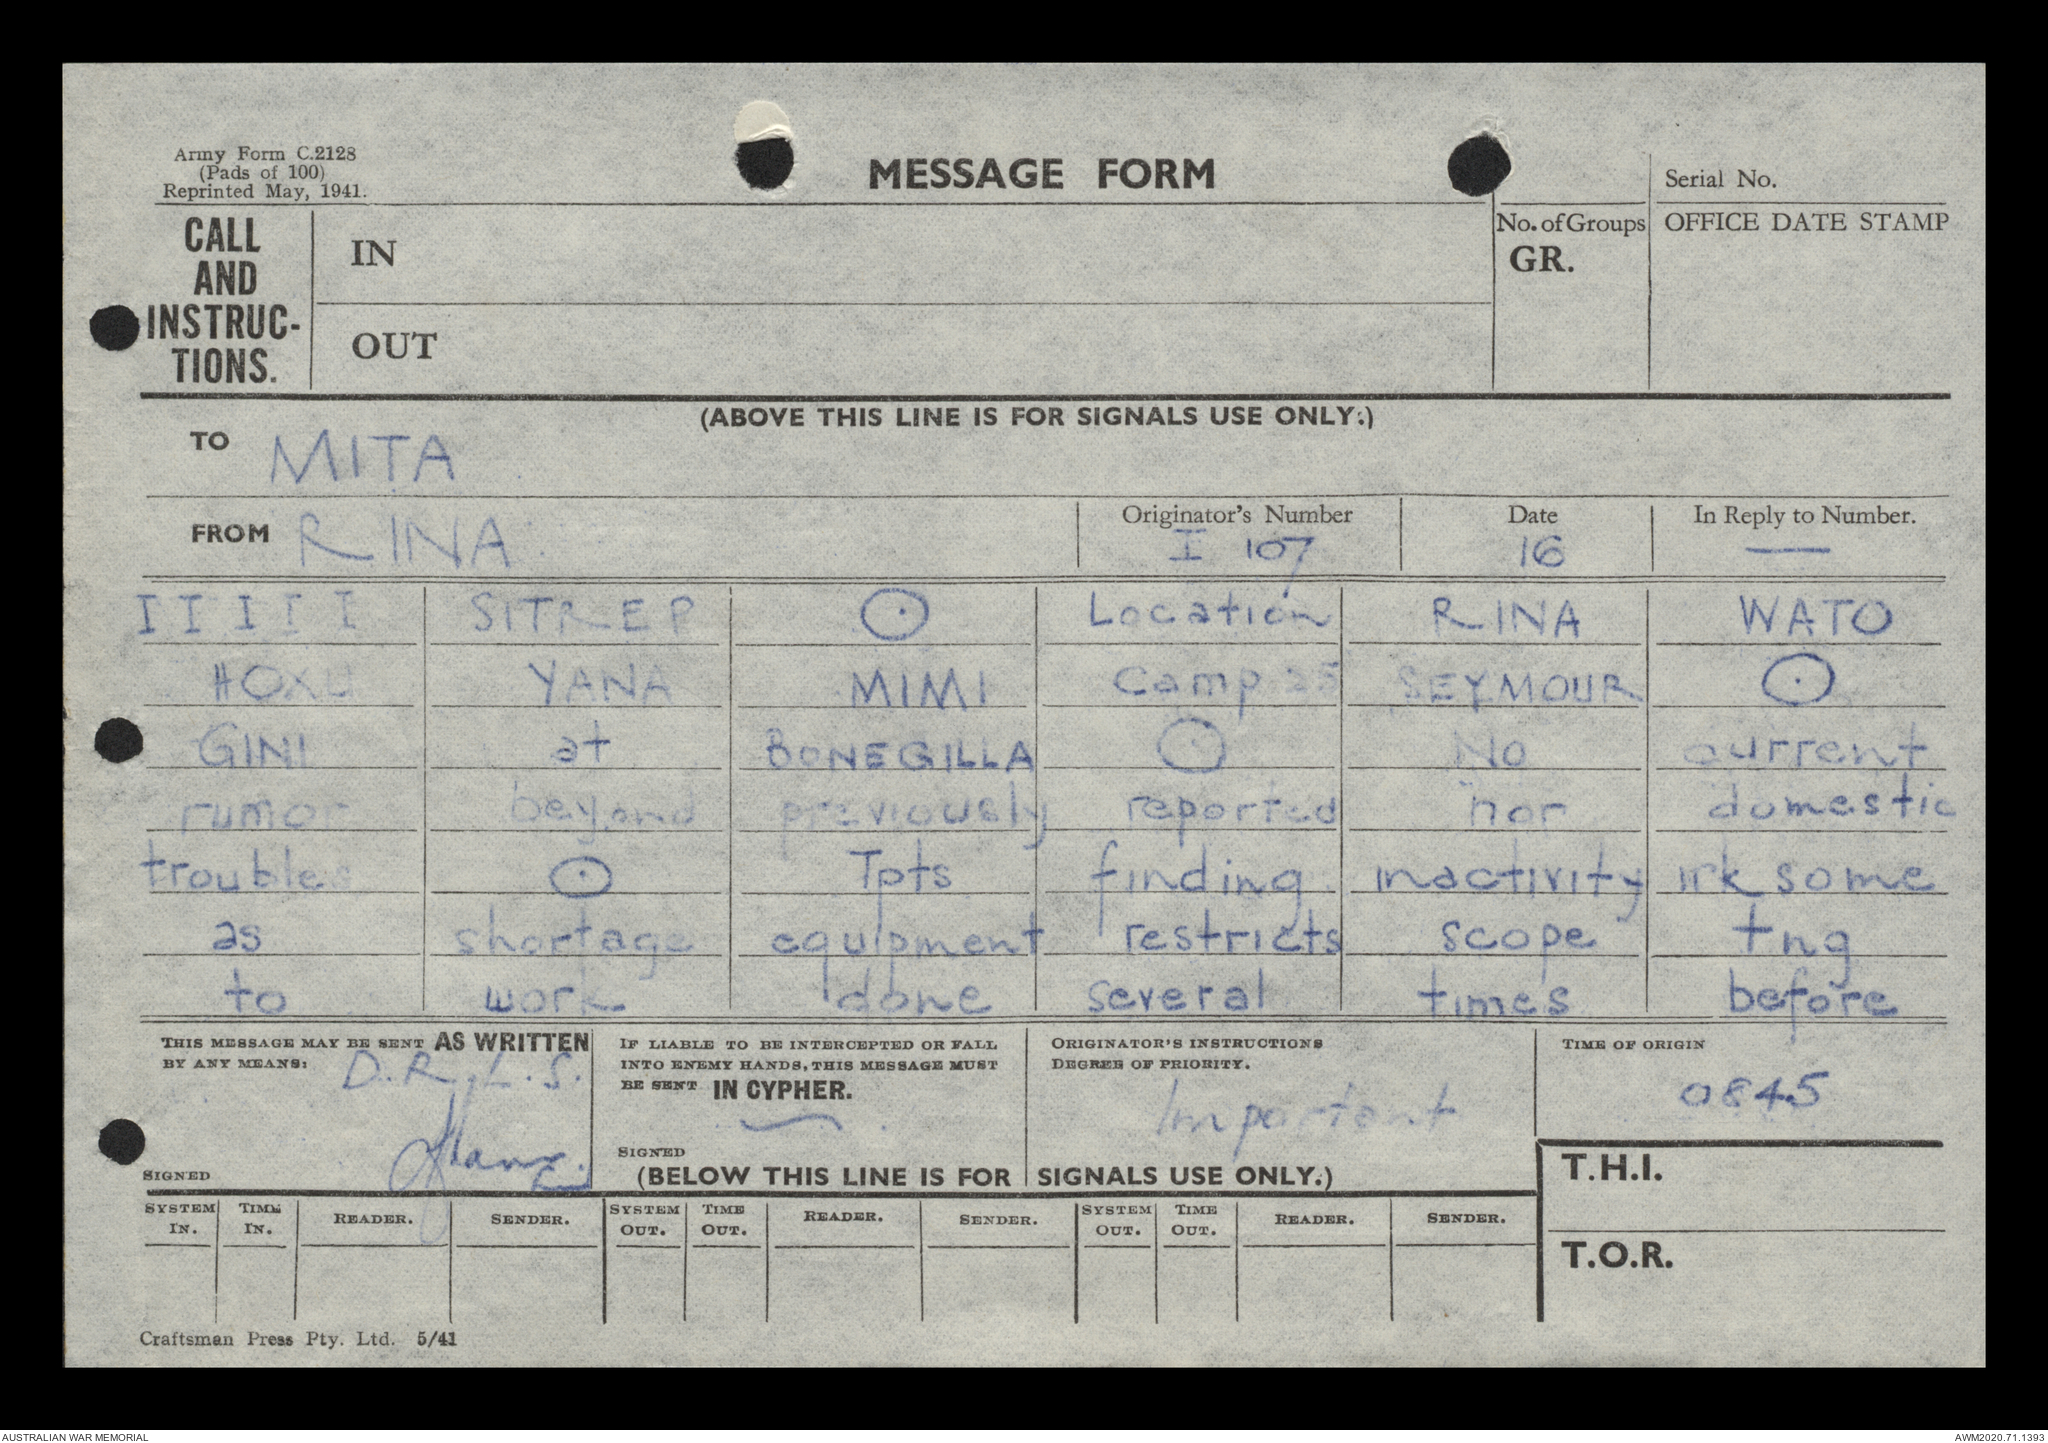 Army Form C.2128
(Pads of 100)
Reprinted May, 1941.
MESSAGE FORM
Serial No.
CALL
AND
INSTRUC-
TIONS.
IN
OUT
No. of Groups
GR.
OFFICE DATE STAMP
(ABOVE THIS LINE IS FOR SIGNALS USE ONLY.)
TO MITA
FROM RINA
Originator's Number
I 107
Date
16
In Reply to Number.
—
I I I I I SITREP ⊙ Location RINA WATO
HOXU YANA MIMI Camp 25 SEYMOUR ⊙
GINI at BONEGILLA ⊙ No current
rumor beyond previously reported nor domestic
troubles ⊙ Tpts finding inactivity irksome
as shortage equipment restricts scope tng
to work done several times before
THIS MESSAGE MAY BE SENT AS WRITTEN
BY ANY MEANS:
D.R.L.S.
SIGNED
IF LIABLE TO BE INTERCEPTED OR FALL
INTO ENEMY HANDS, THIS MESSAGE MUST
BE SENT IN CYPHER.
SIGNED
ORIGINATOR'S INSTRUCTIONS
DEGREE OF PRIORITY.
Important
TIME OF ORIGIN
0845
(BELOW THIS LINE IS FOR SIGNALS USE ONLY.)
T.H.I.
T.O.R.
SYSTEM IN. TIME IN. READER. SENDER. SYSTEM OUT. TIME OUT. READER. SENDER. SYSTEM OUT. TIME OUT. READER. SENDER.
Craftsman Press Pty. Ltd. 5/41
AUSTRALIAN WAR MEMORIAL
AWM2020.71.1393